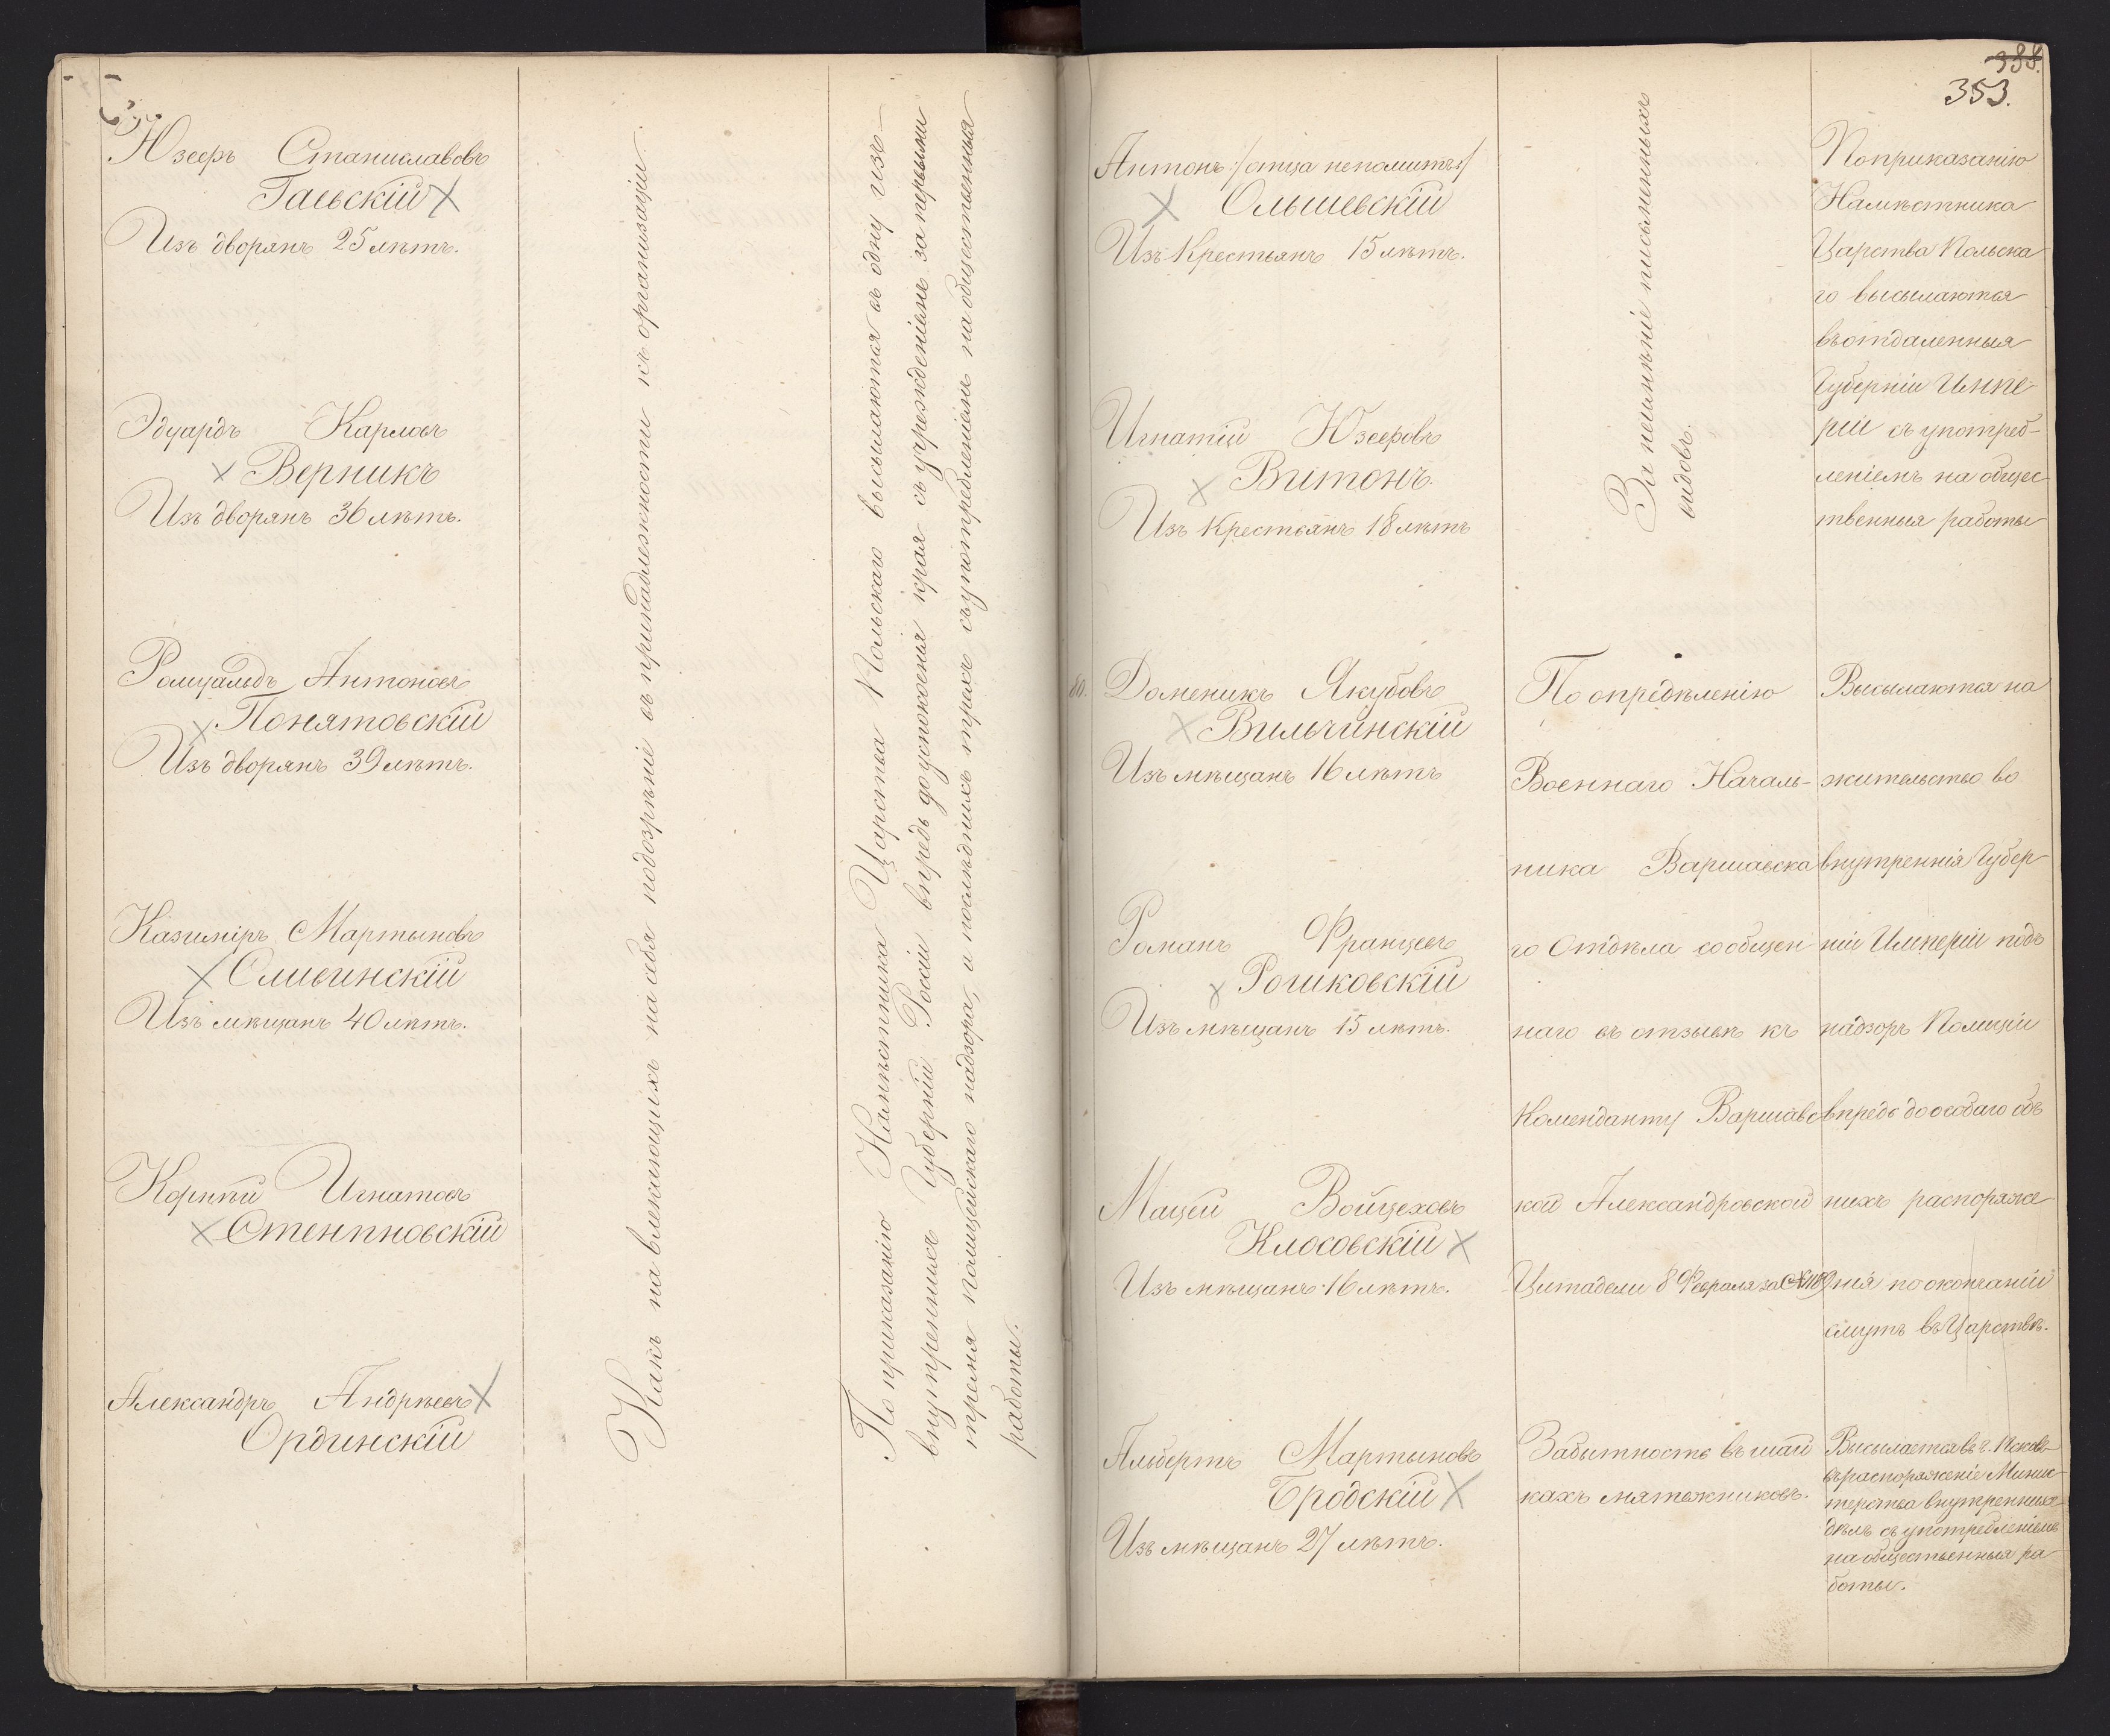 Юзефъ Станиславовъ
Гаевскій
Изъ дворянъ 25 лѣтъ.
Эдуардъ Карловъ
Верникъ
Изъ дворянъ 36 лѣтъ.
Ромуальдъ Антоновъ
Понятовскій
Изъ дворянъ 39 лѣтъ.
Казиміръ Мартыновъ
Сливинскій
Изъ мѣщанъ 40 лѣтъ.
Игнатовъ
Александръ Андрѣевъ
Ординскій
Какъ навлекающихъ на себя подозрѣніе въ принадлежности къ организаціи.
По приказанію Намѣстника Царства Польскаго высылаются въ одну изъ
внутреннихъ Губерній Россіи впредь до успокоенія края съ учрежденіемъ за первыми
тремя полицейскаго надзора, а послѣднихъ трехъ съ употребленіемъ на общественныя
работы.
388.
353.
Антонъ /отца непомнитъ/
Ольшевскій
Изъ Крестьянъ 15 лѣтъ.
Игнатій Юзефовъ
Витонъ.
Изъ Крестьянъ 18 лѣтъ
За неимѣніе письменныхъ
видовъ.
По приказанію
Намѣстника
Царства Польска
го высылаются
въ отдаленныя
Губерніи Импе-
ріи съ употреб-
леніемъ на общес
твенныя работы
80. Доменикъ Якубовъ
Вильчинскій
Изъ мѣщанъ 16 лѣтъ
Романъ Францевъ
Рошковскій
Изъ мѣщанъ 15 лѣтъ.
Мацей Войцеховъ
Клосовскій
Изъ мѣщанъ 16 лѣтъ.
По опредѣленію
Военнаго Началь-
ника Варшавска
го Отдѣла сообщен
наго въ отзывѣ къ
Коменданту Варшавс
кой Александровской
Цитадели 8 Февраля за №
Высылаются на
жительство во
внутреннія Губер-
ніи Имперіи подъ
надзоръ Полиціи
впредь до особаго объ
нихъ распоряже
нія по окончаніи
смутъ въ Царствѣ.
Альбертъ Мартыновъ
Бродскій
Изъ мѣщанъ 27 лѣтъ.
За бытность въ шай
кахъ мятежниковъ.
Высылается въ г. Псковъ
въ распоряженіе Минис
терства Внутреннихъ
дѣлъ съ употребленіемъ
на общественныя ра
боты.